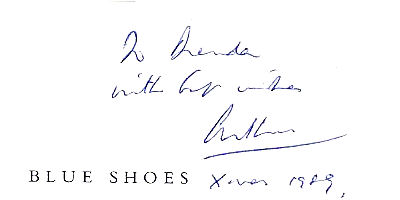 To Brenda
with best wishes
Arthur
BLUE SHOES Xmas 1989,